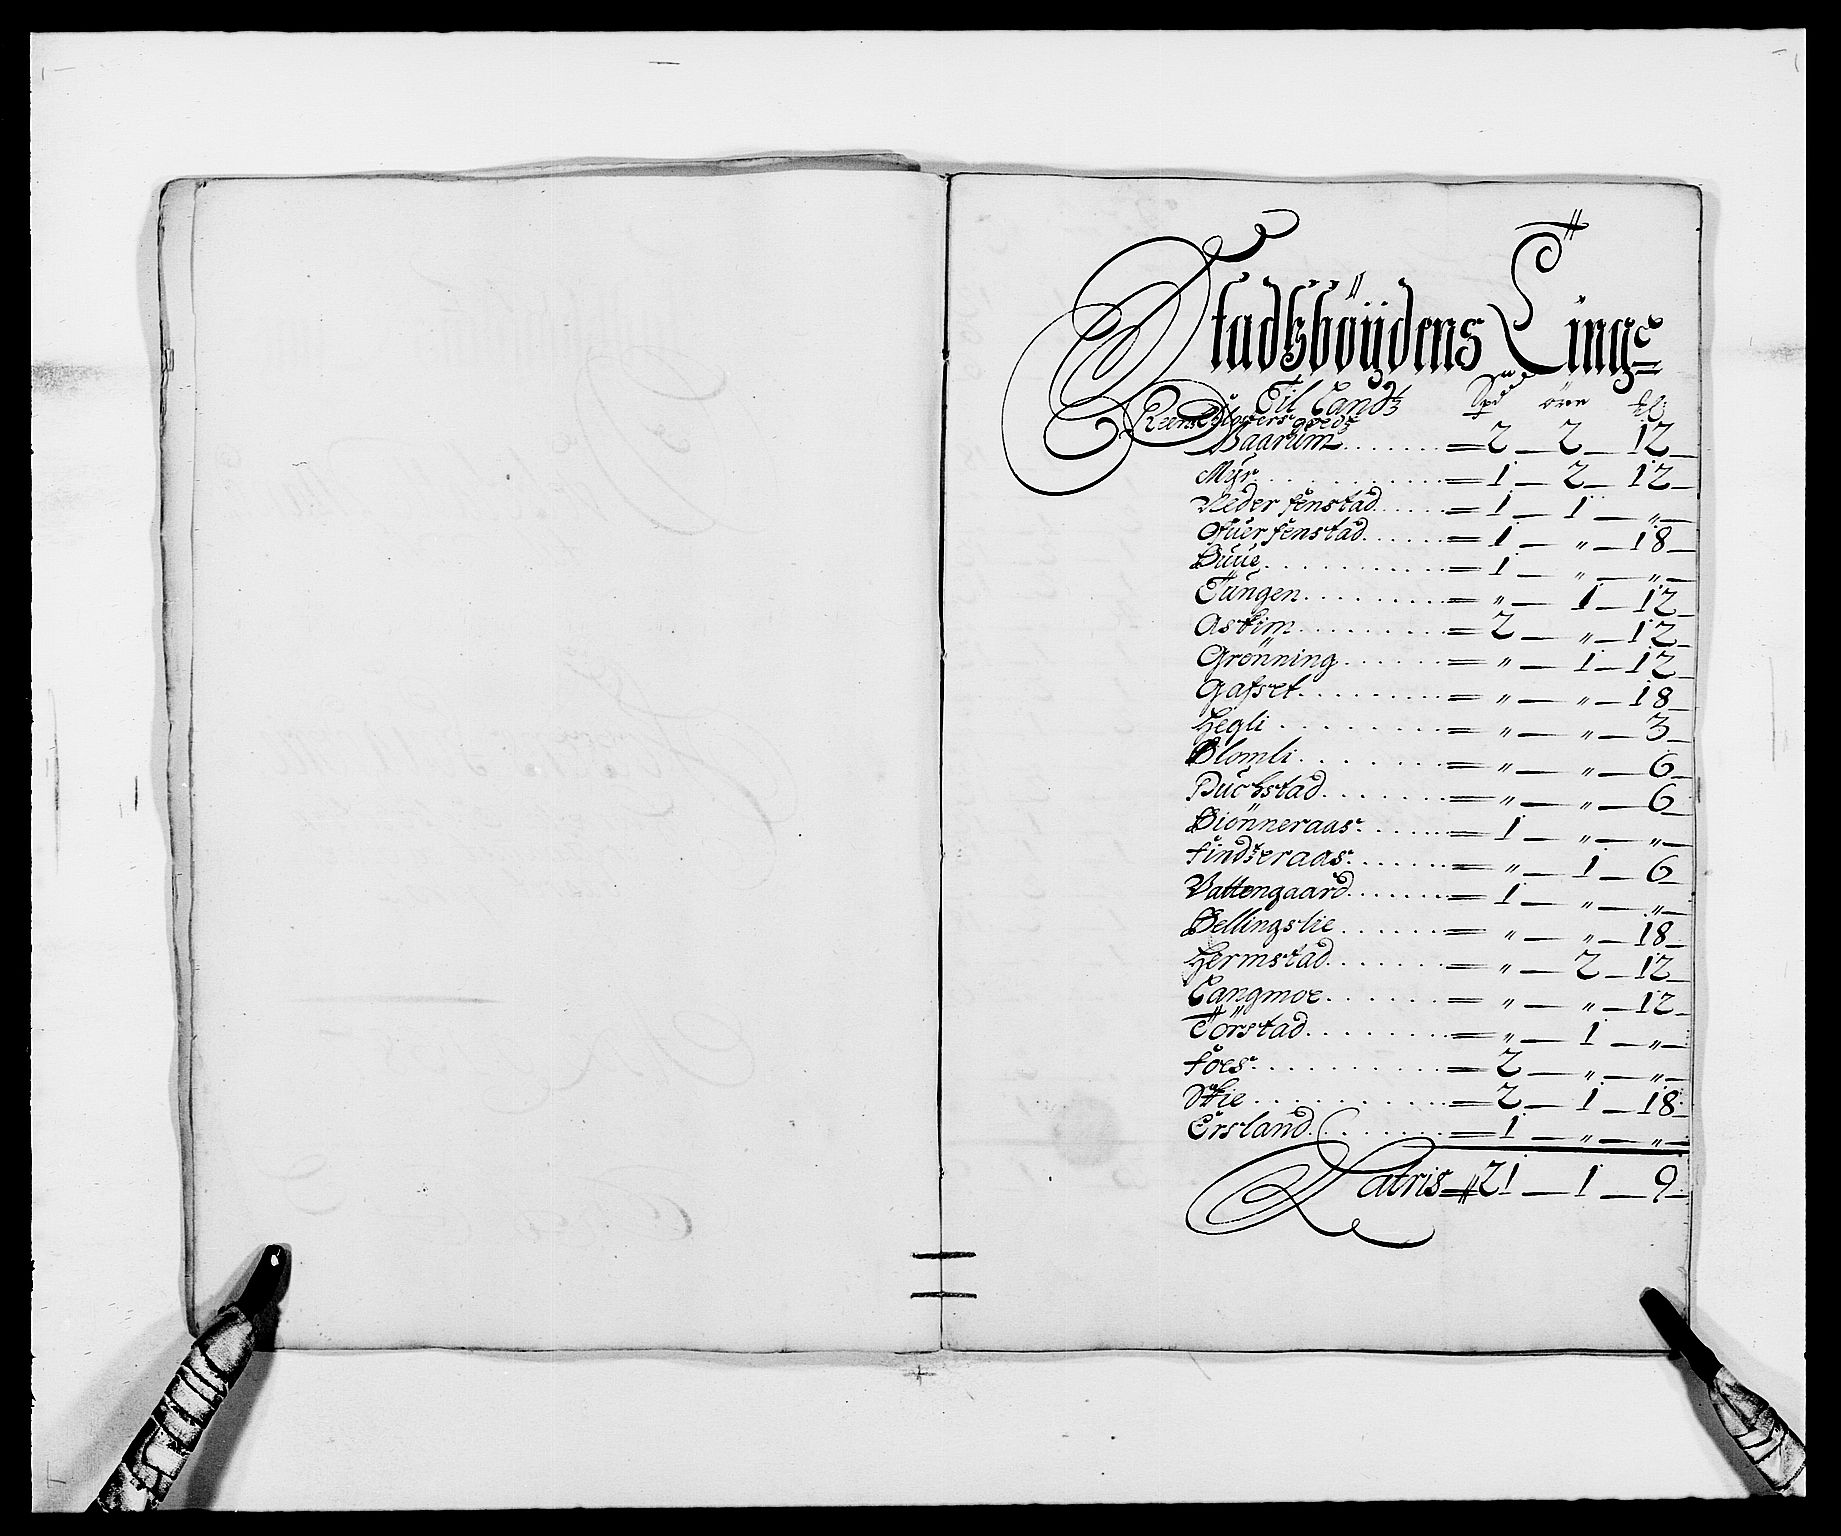 Stadtzböÿdens Ting:
Til Landtz Spd öre ℔
Reens Closters goedtz
Baarum = 2 — 2 — 12
Myr = 1 — 2 — 12
Neder fenstad = 1 — 1 — „
Ofuer fenstad = 1 — „ — 18
Buue = 1 — „ — „
Tungen = „ — 1 — 12
Askim = 2 — „ — 12
Grönning = „ — 1 — 12
Gafset = „ — „ — 18
Hegli = „ — „ — 3
Blomli = „ — „ — 6
Puchstad = „ — „ — 6
Biönneraas = 1 — „ — „
findzeraas = „ — 1 — 6
Vattengaard = 1 — „ — „
Bellingslie = „ — „ — 18
Hermstad = „ — 2 — 12
Langmoe = „ — „ — 12
Törstad = „ — 1 — „
foes = 2 — „ — „
Skie = 2 — 1 — 18
Ersland = 1 — „ — „
Latris 21 — 1 — 9